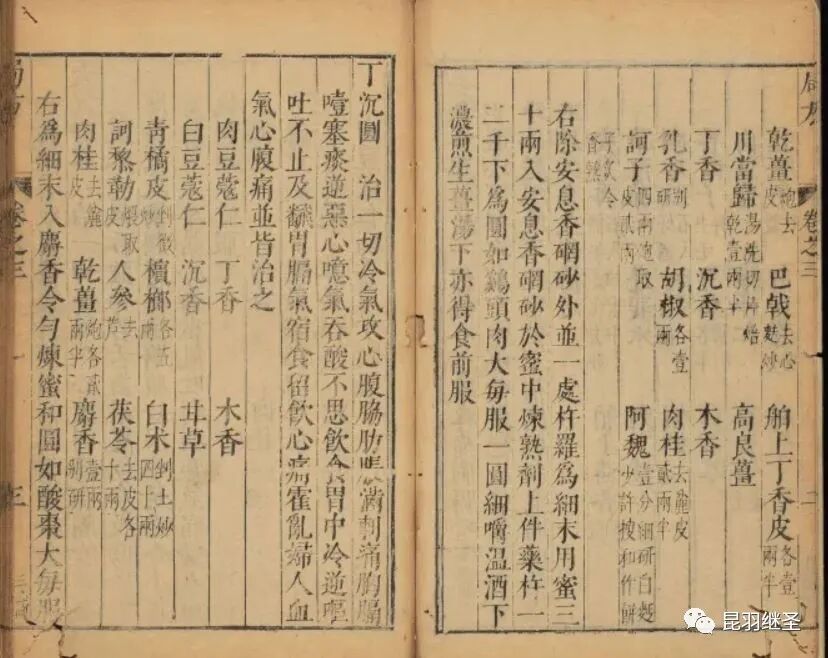 局方 卷之三 二
乾薑炮去皮 巴戟去心麩炒 舶上丁香皮各壹兩半
川當歸湯洗切片焙乾壹兩半 高良薑
丁香 沉香 木香
乳香別研 胡椒各壹兩 肉桂去麄皮貳兩半
訶子四兩炮取皮貳兩 阿魏壹分細研白麫少許搜和作餅
子炙令香熟
右除安息香碙砂外並一處杵羅爲細末用蜜三
十兩入安息香碙砂於蜜中煉熟劑上件藥杵一
二千下爲圓如鷄頭肉大每服一圓細嚼溫酒下
濃煎生薑湯下亦得食前服
丁沉圓 治一切冷氣攻心腹脇肋脹滿刺痛胸膈
噎塞痰逆惡心噫氣吞酸不思飲食胃中冷逆嘔
吐不止及飜胃膈氣宿食留飲心痛霍亂婦人血
氣心腹痛並皆治之
肉豆蔻仁 丁香 木香
白豆蔻仁 沉香 甘草
青橘皮剉微炒 檳榔各五兩 白朮剉土炒四十兩
訶黎勒煨取皮 人參去芦 茯苓去皮各十兩
肉桂去麄皮 乾薑炮各貳兩半 麝香壹兩別研
右爲細末入麝香令勻煉蜜和圓如酸棗大每服
局方 卷之三 三
昆羽继圣